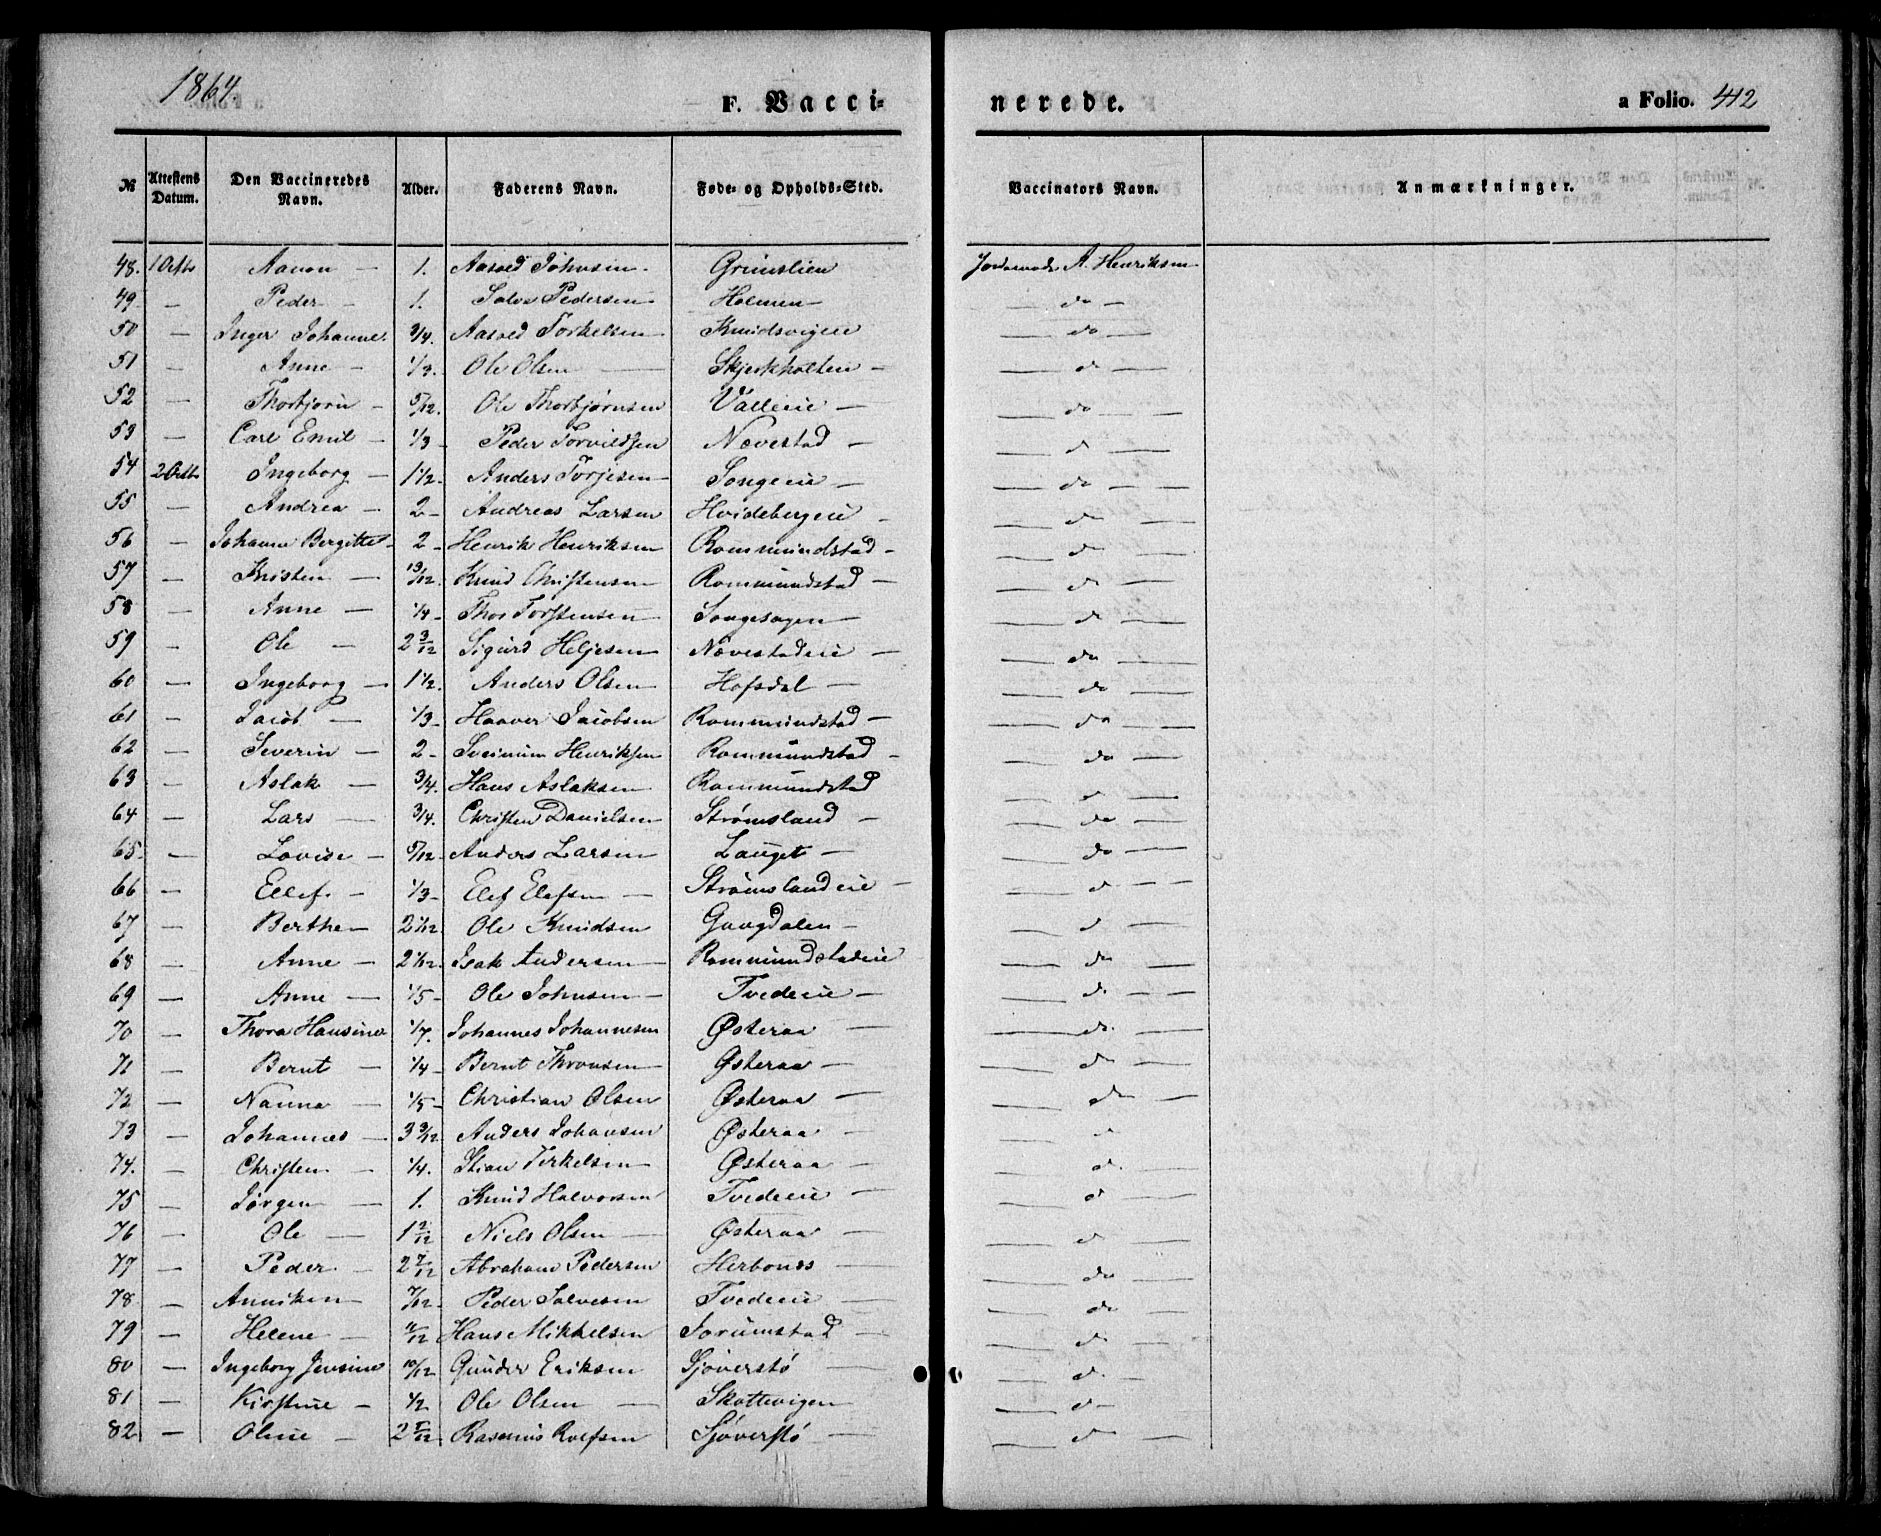 1864
F. Vacci- nerede. a Folio. 412
№ Attestens Datum. Den Vaccineredes Navn. Alder. Faderens Navn. Føde- og Opholds-Sted. Vaccinators Navn. Anmærkninger.
48. 1 Octb Aanon — 1. Aasold Johnsen. Grimslien Jordemode A. Henriksen
49. — Peder — 1. Salve Pedersen Holmen — do —
50 — Inger Johanne. 3/4. Aasold Torkelsen Knudsvigeie — do —
51 — Anne — 1/3. Ole Olsen — Skjerkholteie — — d —
52 — Thorbjørn — 5/12. Ole Thorbjørnsen Valleeie — — do —
53 — Carl Emil — 1/3 — Peder Torvildsen Nævestad — — d —
54 2 Octb Ingeborg — 1 1/2. Anders Torjesen Songeeie — — do —
55 — Andrea — 2 — Andreas Larsen Hvidebergeie — — do —
56 — Johanne Bergitte 2 — Henrik Henriksen Rommundstad — — do —
57 — Kristen — 13/12. Knud Christensen Rommundstad — — d —
58 — Anne — 1/4 — Thor Torstensen Songesagen — — d —
59 — Ole — 2 3/12 Sigurd Heljesen Nævestadeie — — do —
60 — Ingeborg — 1 1/2. Anders Olsen Hofsdal — — do —
61 — Jacob — 1/3 — Haaver Jacobsen Rommundstad — — do —
62 — Severin — 2 — Sveinum Henriksen Rommundstad — — do —
63 — Aslak — 3/4. Hans Aslaksen Rommundstad — d —
64 — Lars — 3/4. Christen Danielsen Strømsland — — do —
65. — Lovise — 5/12 — Anders Larsen Lauget — — do —
66 — Ellef. — 1/3 — Elef Elefsen — Strømslandeie — — d —
67 — Berthe — 2 1/12 Ole Knudsen Gangdalen — — d —
68 — Anne — 2 1/12. Isak Andersen — Rommundstadeie — do —
69 — Anne — 1/5 — Ole Johnsen — Tvedeeie — — d. —
70 — Thora Hansine 1/7. Johannes Johannesen Østeraa — — do. —
71 — Bernt — 1/4 — Bernt Thronsen Østeraa — — d —
72 — Nanna — 1/5 — Christian Olsen Østeraa — — do —
73 — Johannes — 3 3/12. Anders Johansen Østeraa — — d —
74. — Christen — 1/4. Stian Terkelsen Østeraa — — d. —
75 — Jørgen — 1. Knud Halvorsen Tvedeeie — — d —
76 — Ole — 1 2/12 Niels Olsen — Østeraa — — d —
77 — Peder — 2 7/12 Abraham Pedersen Herbones — — do —
78 — Anniken — 7/12. Peder Salvesen Tvedeeie — — do —
79 — Helene — 11/12 Hans Mikkelsen Jorumstad — — d —
80 — Ingeborg Jensine 10/12 Gunder Eriksen Sjøverstø — — d. —
81 — Kirstine — 1/2 Ole Olsen — Skottevigen — d —
82 — Oline — 2 5/12 Rasmus Rolfsen Sjøverstø — — d —